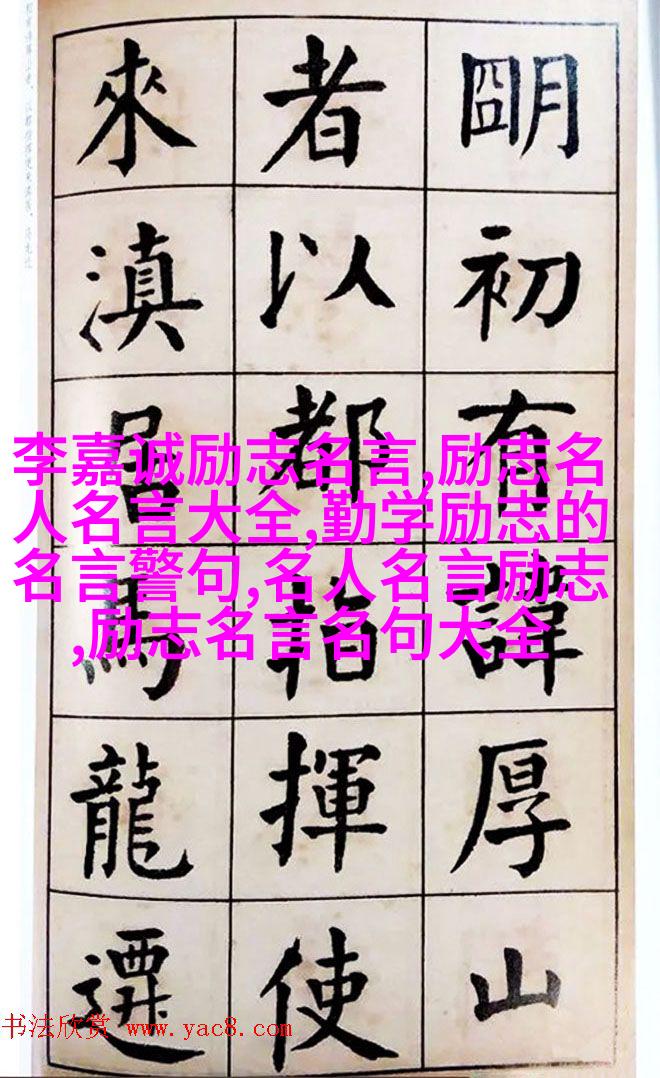 朙初有諱厚山
者以都指揮使
來滇居馬龍遷
李嘉诚励志名言,励志名
人名言大全,勤学励志的
名言警句,名人名言励志
,励志名言名句大全
书法欣赏 www.yac8.com